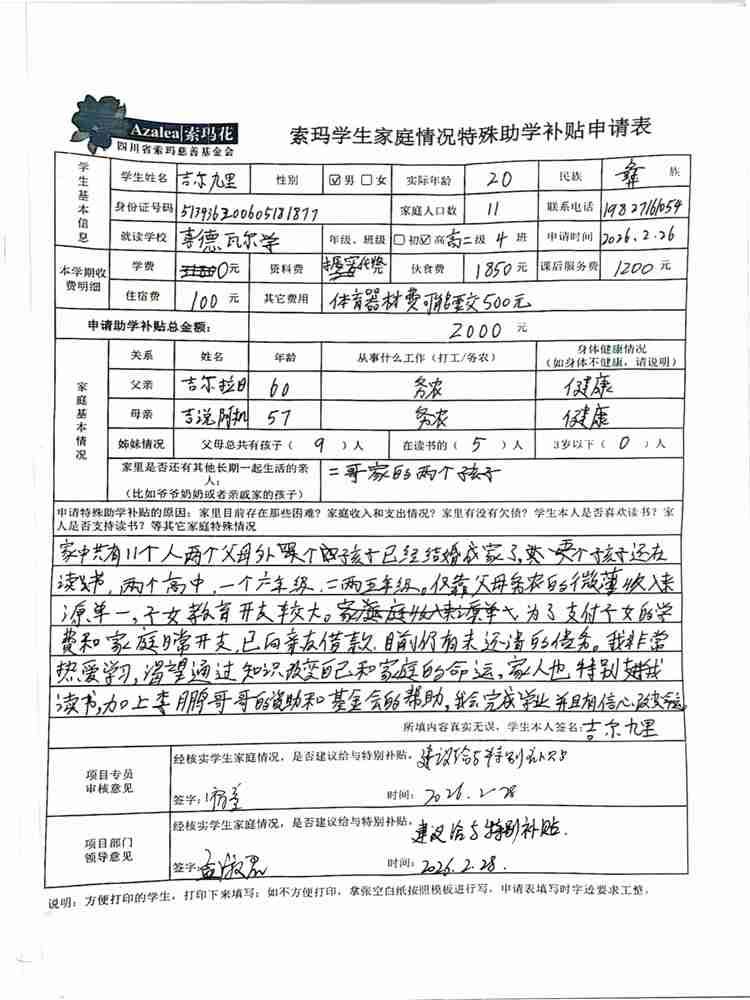 Azalea 索玛花
四川省索玛慈善基金会
索玛学生家庭情况特殊助学补贴申请表
学生基本信息
学生姓名 吉尔九里 性别 ☑男 □女 实际年龄 20 民族 彝 族
身份证号码 家庭人口数 11 联系电话 19827161054
就读学校 年级、班级 □初☑高 高二级 4 班 申请时间 2026.2.26
本学期收费明细
学费 0元 资料费 伙食费 1850元 课后服务费 1200元
住宿费 100元 其它费用 体育器材费可能要交500元
申请助学补贴总金额: 2000 元
家庭基本情况
关系 姓名 年龄 从事什么工作(打工/务农) 身体健康情况
(如身体不健康,请说明)
父亲 吉尔拉日 60 务农 健康
母亲 57 务农 健康
姊妹情况 父母总共有孩子( 9 )人 在读书的( 5 )人 3岁以下( 0 )人
家里是否还有其他长期一起生活的亲人:
(比如爷爷奶奶或者亲戚家的孩子)
二哥家的两个孩子
申请特殊助学补贴的原因:家里目前存在那些困难?家庭收入和支出情况?家里有没有欠债?学生本人是否喜欢读书?家
人是否支持读书?等其它家庭特殊情况
家中共有11个人两个父母外 孩子已经结婚成家了, 个孩子还在
读书,两个高中,一个六年级,二两五年级。仅靠父母务农的微薄收入来
源单一,子女教育开支较大。为了支付子女的学
费和家庭日常开支,已向亲友借款,目前仍有未还清的债务。我非常
热爱学习,渴望通过知识改变自己和家庭的命运,家人也特别支持我
读书,加上李鹏哥哥的资助和基金会的帮助,我会完成学业并且有信心改变命运。
所填内容真实无误,学生本人签名:吉尔九里
项目专员
审核意见
经核实学生家庭情况,是否建议给与特别补贴。建议给与特别补贴
签字: 时间: 2026.2.28
项目部门
领导意见
经核实学生家庭情况,是否建议给与特别补贴。建议给与特别补贴.
签字: 时间: 2026.2.28.
说明:方便打印的学生,打印下来填写;如不方便打印,拿张空白纸按照模板进行写,申请表填写时字迹要求工整。